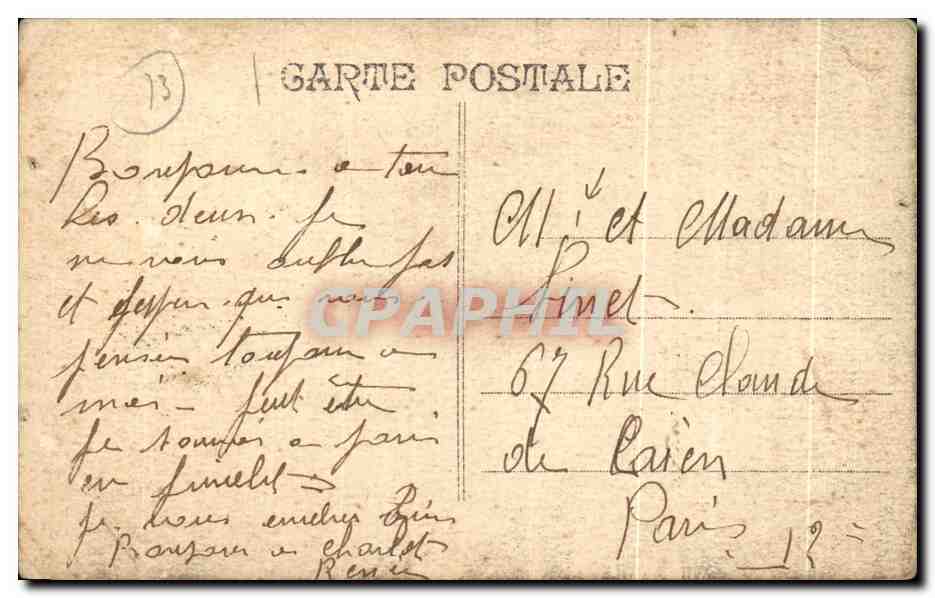 13
CARTE POSTALE
Bonjour a tou
Les deux. Je
ne vous oublie pas
et jesper que vous
penser toujour a
moi - peut être
Je a paris
en juillet
Je vous
Bonjour a Charlot
Mr et Madame
Pinet
67 Rue Claude
de Caen
Paris - 12
CPAPHIL